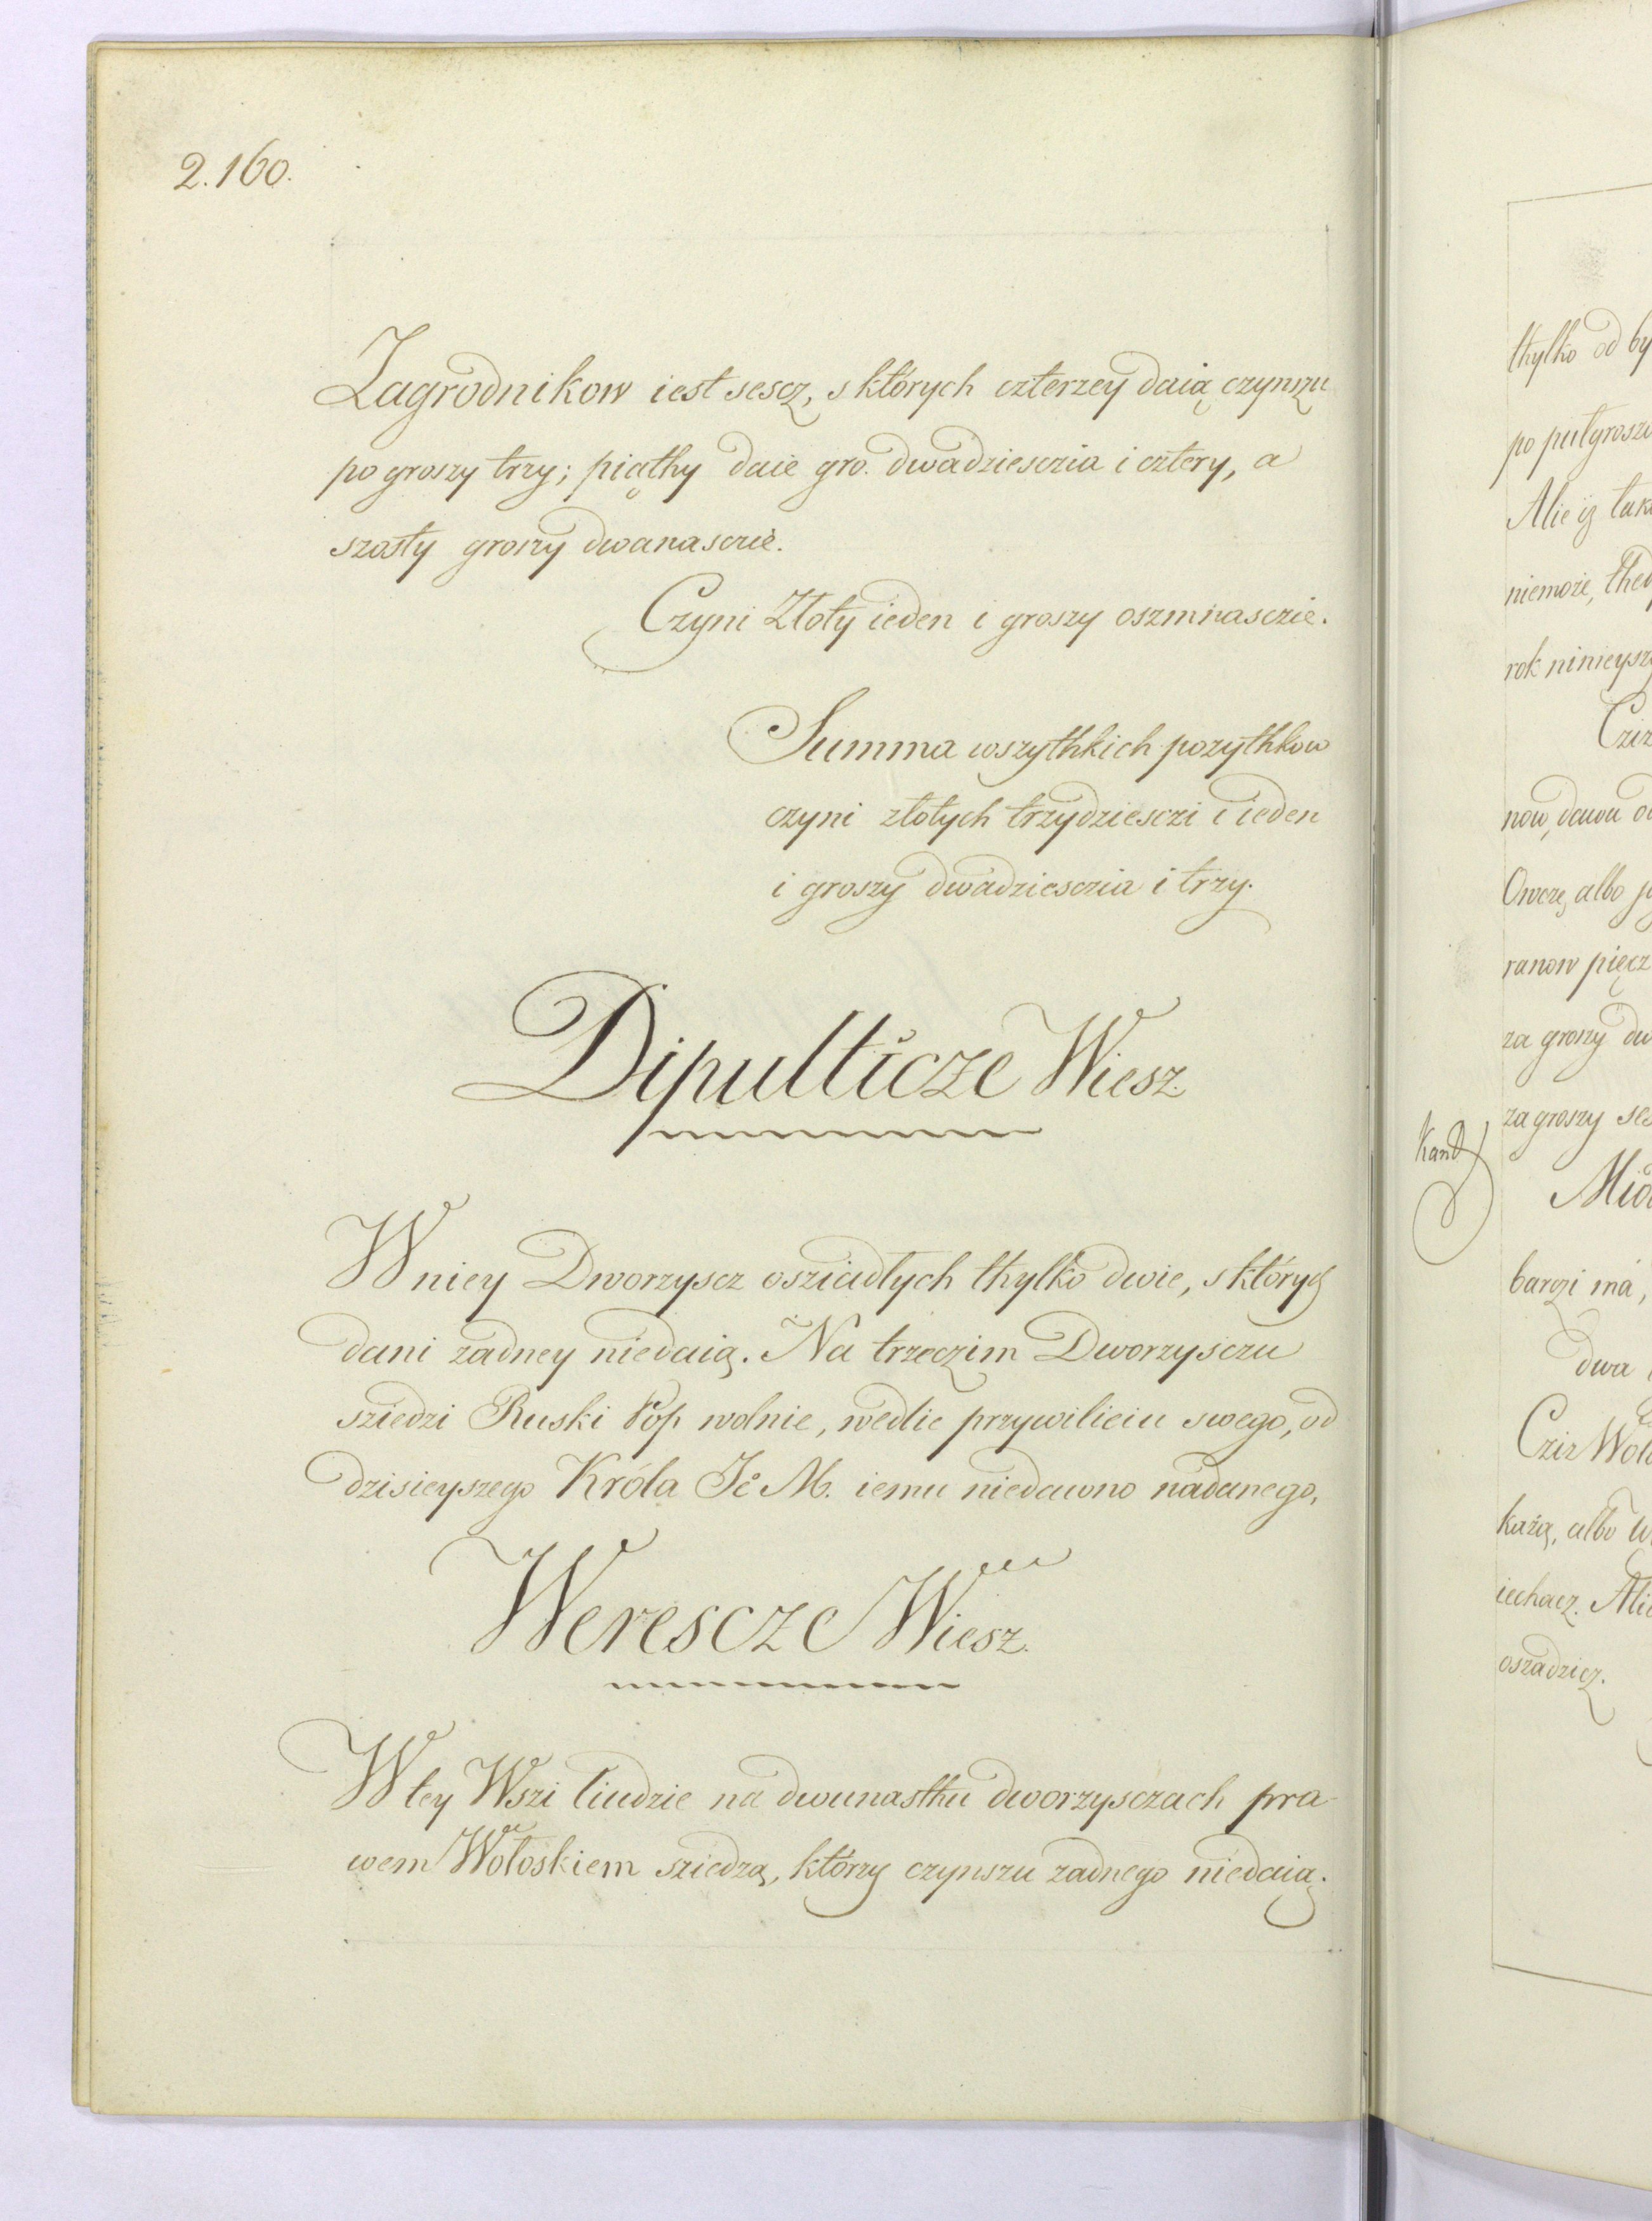 2.160.
Zagrodnikow iest sescz, s których czterzey daią czynszu
po groszy trzy; piąthy daie gro. dwadziesczia i cztery, a
szosty groszy dwanasczie.
Czyni Złoty ieden i groszy oszmnasczie.
Summa wszythkich pozythkow
czyni złotych trzydziesczi i ieden
i groszy dwadziesczia i trzy.
Dipulticze Wiesz.
W niey Dworzyscz osziadłych thylko dwie, s których
dani zadney niedaią. Na trzeczim Dworzysczu
sziedzi Ruski Pop wolnie, wedlie przywilieiu swego, od
dzisieyszego Króla Je M. iemu niedawno nadanego,
Werescze Wiesz.
W tey Wszi liudzie na dwunasthu dworzysczach pra-
wem Wołoskiem sziedzą, którzy czynszu zadnego niedaią.
thylko od
po pułgrosz
Alie iz
niemoze,
rok ninieysz
now,
Owcze, albo
ranow pięcz
za groszy
za groszy
Kand
barzi ma,
dwa
Czir
każą, albo
iechacz.
oszadzicz.